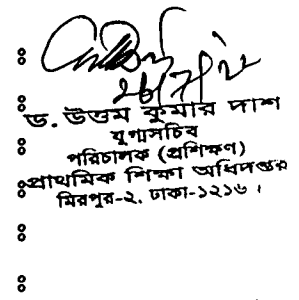 ড. উত্তম কুমার দাশ
যুগ্মসচিব
পরিচালক (প্রশিক্ষণ)
প্রাথমিক শিক্ষা অধিদপ্তর
মিরপুর-২, ঢাকা-১২১৬ ।